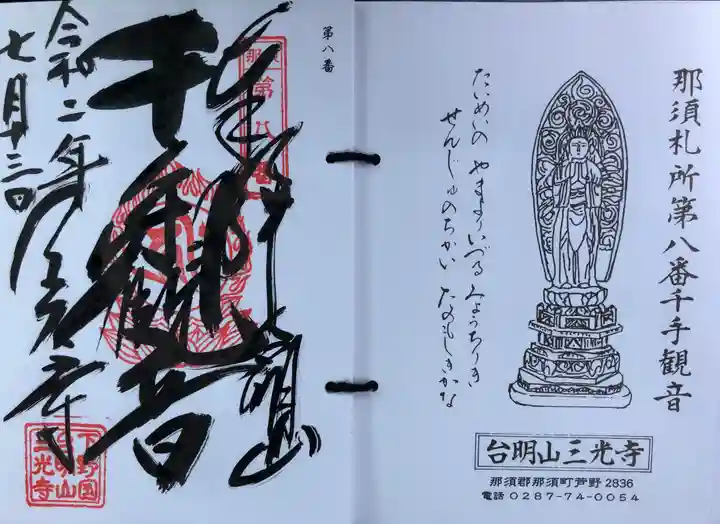 那須札所第八番千手観音
たいめいの やまよりいづる みょうちりき
せんじゅのちかい たのもしきかな
台明山三光寺
那須郡那須町芦野2836
電話 0287-74-0054
第八番
奉拝
台明山
千手観音
令和二年
七月十三日
三光寺
下野国
台明山
三光寺